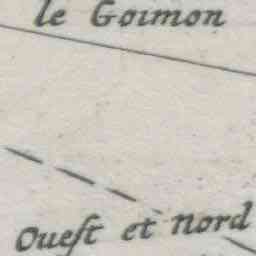 le Goimon
Oueſt et Nord